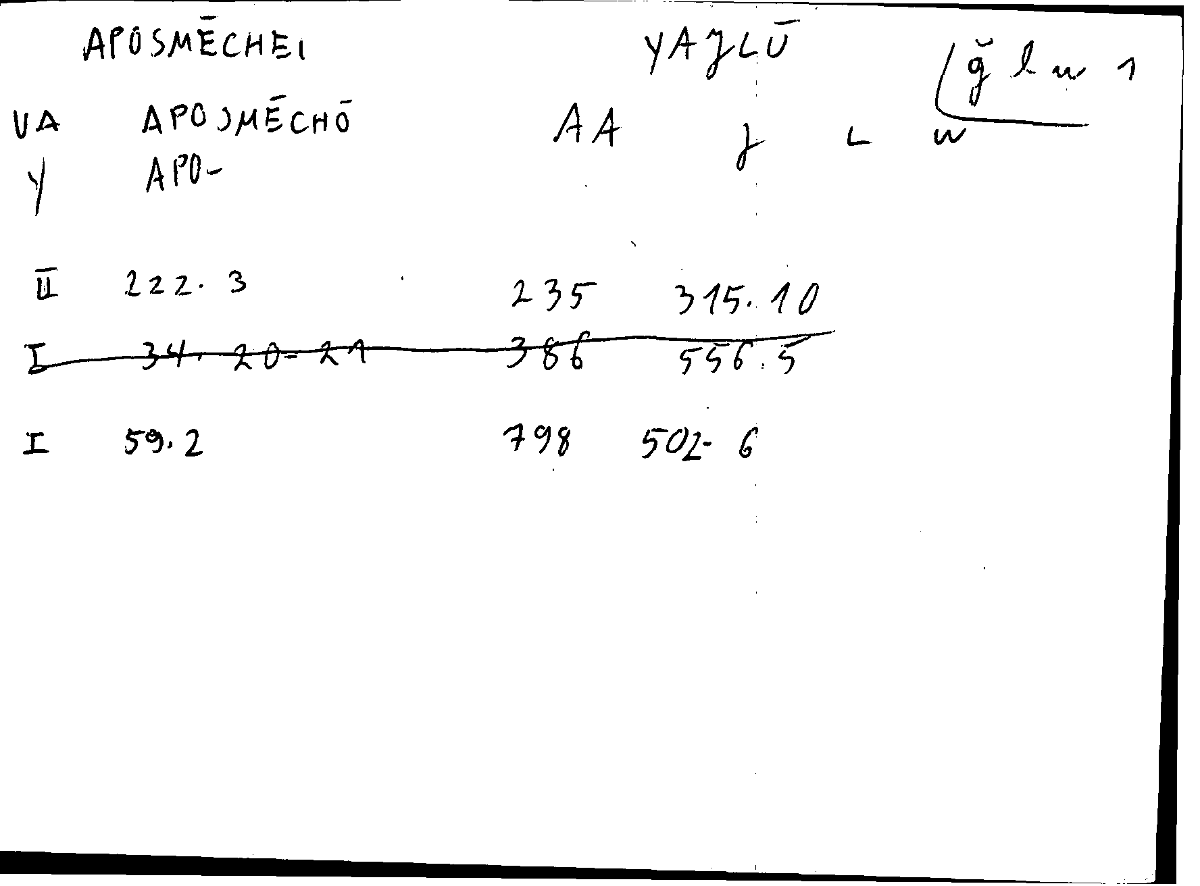 APOSMĒCHEI YAJLŪ
ğ l w 1
VA APOSMĒCHŌ AA J L W
Y APO-
II 222. 3 235 315. 10
I 34. 20-21 386 556. 5
I 59. 2 798 502- 6